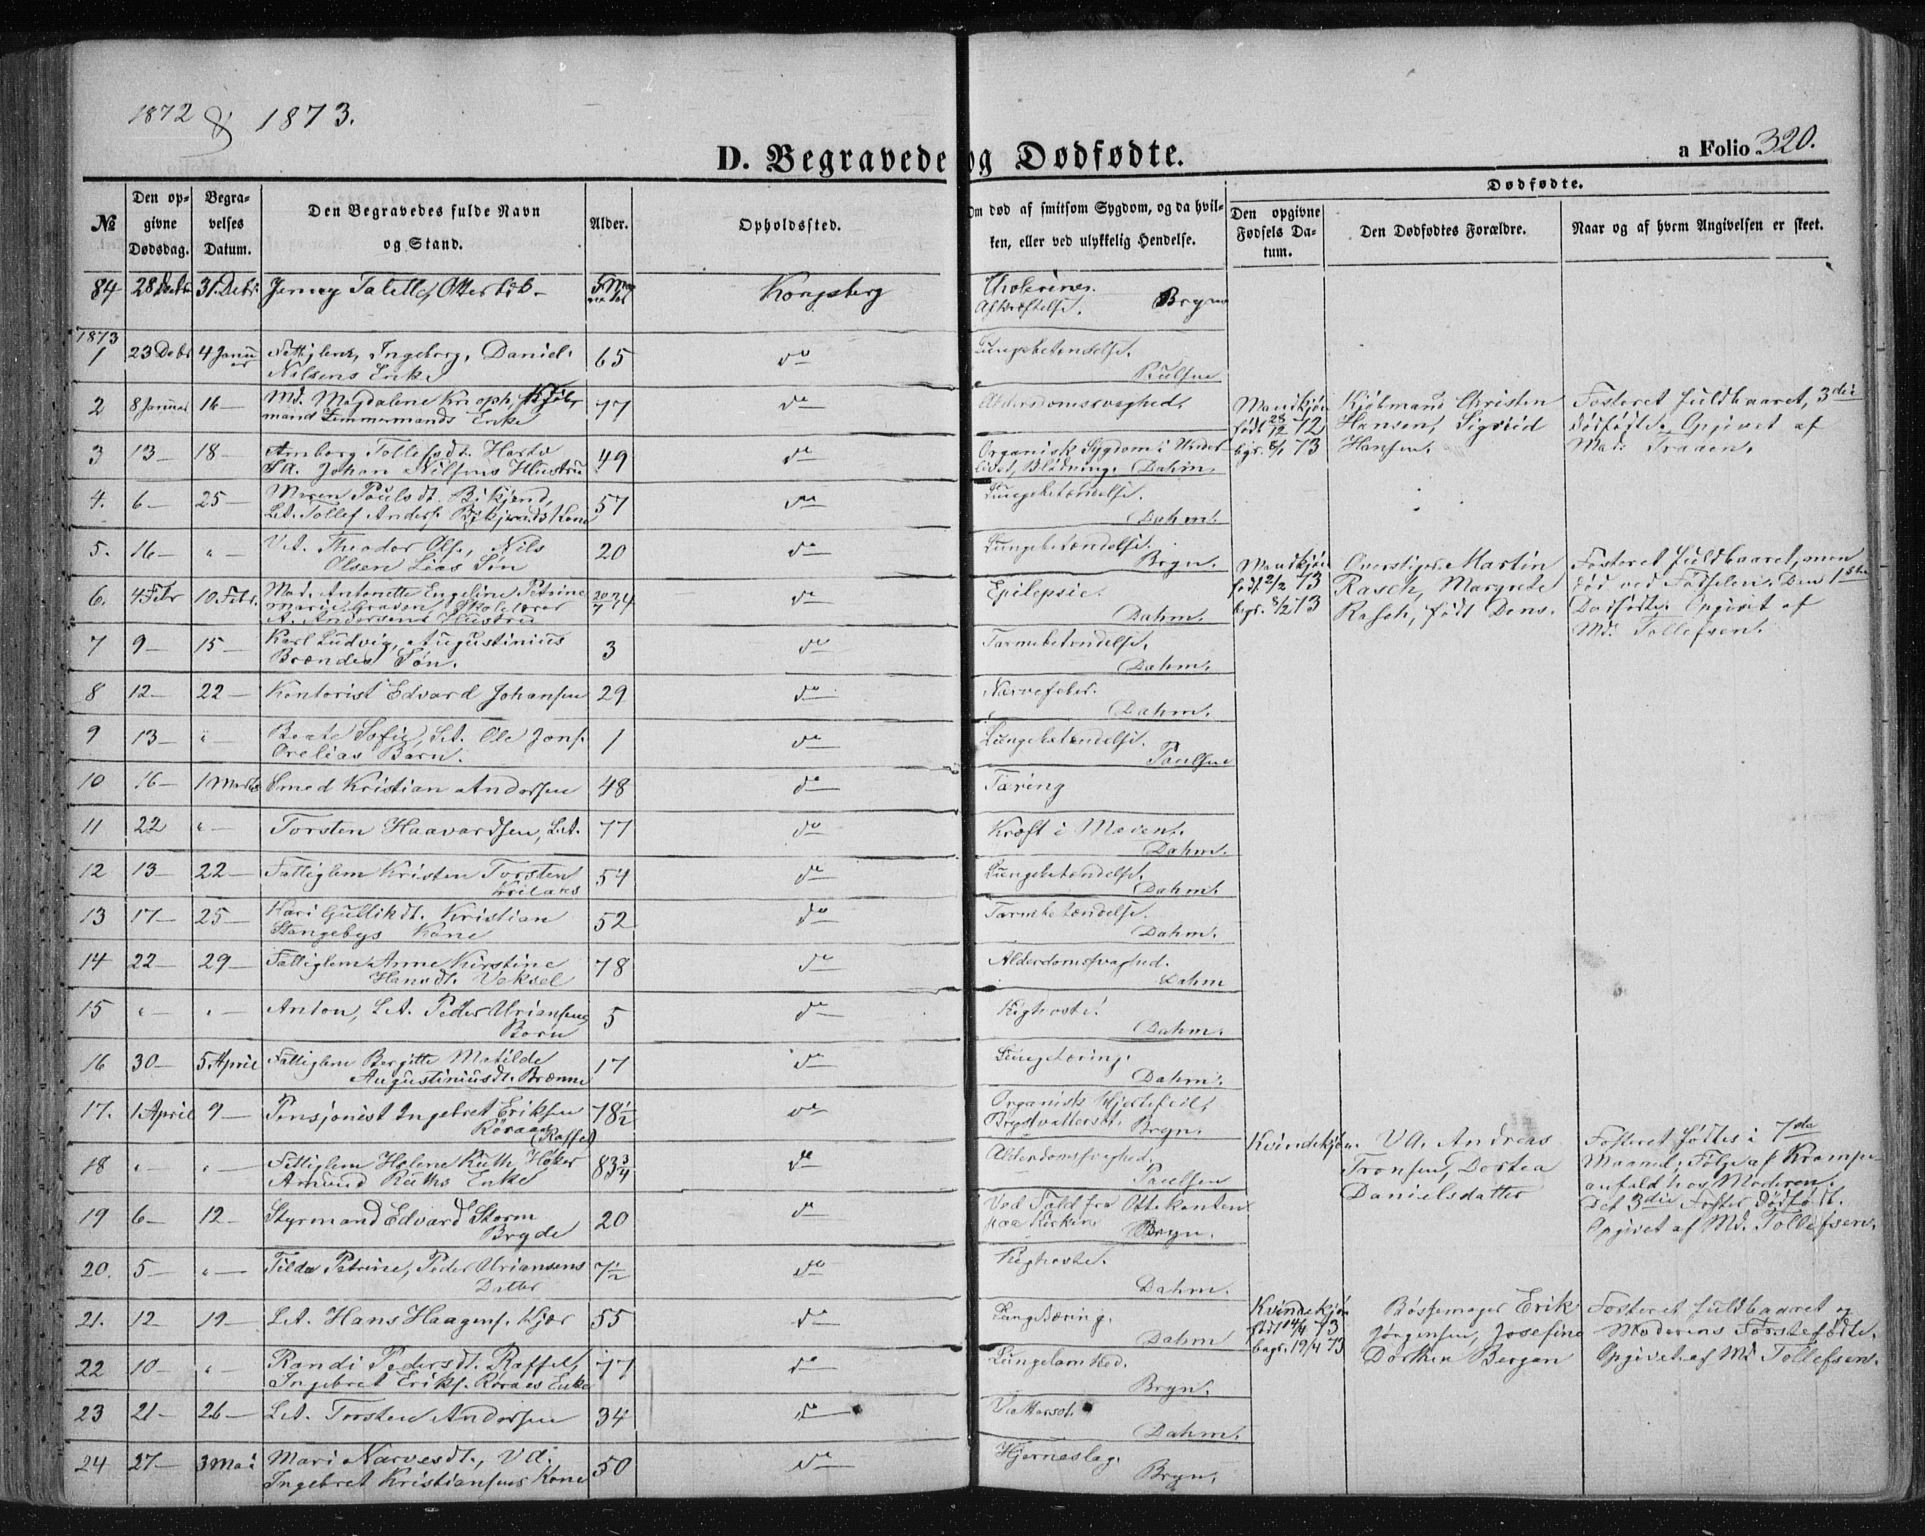 1872 & 1873.
D. Begravede og Dødfødte.
a Folio 320.
№
Den opgivne Dødsdag.
Begravelses Datum.
Den Begravedes fulde Navn og Stand.
Alder.
Opholdssted.
Om død af smitsom Sygdom, og da hvilken, eller ved ulykkelig Hendelse.
Dødfødte.
Den opgivne Fødsels Datum.
Den Dødfødtes Forældre.
Naar og af hvem Angivelsen er skeet.
84 28 Decbr 31 Debr Jenny Otterbek 5 Kongsberg
Afkræftelse. Bryn
1873
1 23 Debr 4 Januar Fattiglem, Ingeborg, Daniel 65 do Lungebetændelse.
Nilsens Enke
2 8 Januar 16 — Md. Magdalene Knoph, Kjøb 77 do Alderdomssvaghed,
mand Zimmermands Enke
Mandkjøn Kjøbmand Christen Fosteret fuldbaaret, 3die
født 28/12 72 Hansen, Sigvrid dødfødte. Opgivet af
bgr. 8/1 73 Hansen. Mad. Traaen.
3 13 — 18 — Amborg Tollefsdt. 49 do Organisk Sygdom i Under
Johan Nilsens Hustru livet, Blødning. Dahm.
4. 6 — 25 — Maren Poulsdt. Bikjend 57 do Lungebetændelse.
L.A. Tollef Anders. Bikjends Kone Dahm.
5. 16 — " — V.A. Theodor Ols., Nils 20 do Lungebetændelse.
Olsen Lias Søn Bryn.
Mandkjøn Overstiger Martin Fosteret fuldbaaret, men
født 2/2 73 Rasch, Margrete død ved Fødselen. Den 1ste
bgr. 8/2 73 Rasch, født Dons. Dødfødte. Opgivet af
Md. Tollefsen.
6. 4 Febr 10 Febr. Mad. Antonette Engeline Petrine do Epilepsie.
Marie Graven, Skolelærer Dahm.
A. Andersens Hustru
7 9 — 15 — Karl Ludvig, Augustinius 3 do Tarmebetændelse.
Brændes Søn. Dahm.
8 12 — 22 — Kontorist Edvard Johansen 29 do Nervefeber.
Dahm.
9 13 — " — Beate Sofie, L.A. Ole Jons. 1 do Lungebetændelse.
Orelias Barn. Paulsen
10 16 — 1 Marts Smed Kristian Andersen 48 do Tæring
11 22 " — Torsten Haavardsen, L.A. 77 do Kræft i Maven.
Dahm.
12 13 — 22 — Fattiglem Kristen Torsten 54 do Lungebetændelse.
Dahm.
13 17 — 25 — Kari Gulliksdt. Kristian 52 do Tarmebetændelse.
Stangebys Kone Dahm.
14 22 — 29 — Fattiglem Anne Kirstine 78 do Alderdomssvaghed.
Hansdt. Veksel Dahm
15 " — " — Anton, L.A. Peder Uriansens 5 do Kighoste.
Barn Dahm.
16 30 — 5 April Fattiglem Bergitte Matilde 17 do Lungetæring.
Augustiniusdt. Brænne Dahm.
17. 1 April 9 — Pensjonist Ingebret Eriksen 78 1/2 do Organisk Hjertefeil,
Røraas (Raffel) Brystvattersot. Bryn.
18 " — " — Fattiglem Helene Ruth, Høker 83 3/4 do Alderdomssvaghed,
Amund Ruths Enke Paulsen
Kvindekjøn. V.A. Andreas Fosteret fødtes i 7de
Tronsen, Dortea Maaned, Følge af Krampe
Danielsdatter anfald hos Moderen.
Det 3die Foster dødfødt.
Opgivet af Md. Tollefsen.
19 6 — 12 — Styrmand Edvard Storm 20 do Ved Fald fra Ottekanten
Bryde paa Kirken Bryn.
20. 5 — " — Tilda Petrine, Peder Uriansens 7 1/2 do Kighoste.
Datter Dahm.
21. 12 19 — L.A. Hans Haagens. Kjær 55 do Lungetæring.
Dahm
Kvindekjøn Bøssemager Erik Fosteret fuldbaaret og
født 14/4 73 Jørgensen, Josefine Moderens Førstefødte.
begr. 19/4 73 Dorthea Bergan Opgivet af Md Tollefsen.
22 10 — " Randi Pedersdt. Raffel, 77 do Lungelamhed.
Ingebret Eriks. Røraas Enke Bryn.
23 21 — 26 — L.A. Torsten Andersen 34 do Vattersot.
Dahm.
24 27 — 3 Mai Mari Narvesdt., V.A. 50 do Hjerneslag.
Ingebret Kristiansens Kone Bryn.